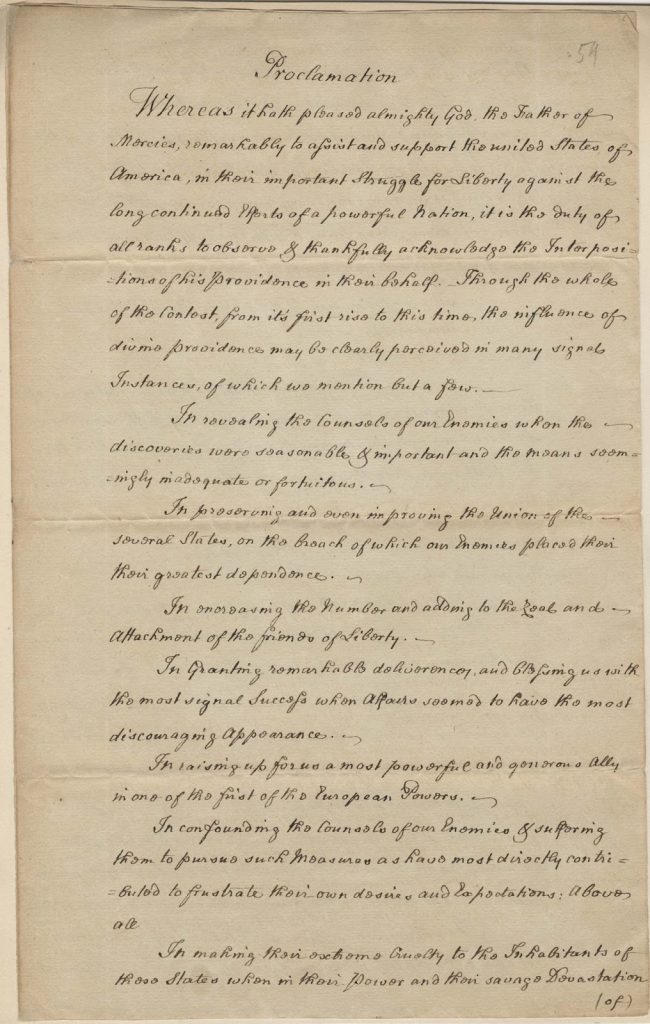 54
Proclamation
Whereas it hath pleased almighty God, the Father of
Mercies, remarkably to assist and support the united States of
America, in their important Struggle for Liberty against the
long continued Efforts of a powerful Nation, it is the duty of
all ranks to observe & thankfully acknowledge the Interposi=
=tions of his Providence in their behalf. Through the whole
of the Contest, from it's first rise to this time, the influence of
divine providence may be clearly perceived in many signal
Instances, of which we mention but a few.
In revealing the Counsels of our Enemies when the
discoveries were seasonable & important and the means seem=
=ingly inadequate or fortuitous.
In preserving and even improving the Union of the
several States, on the breach of which our Enemies placed their
their greatest dependence.
In encreasing the Number and adding to the Zeal and
Attachment of the friends of Liberty.
In Granting remarkable deliverences, and blessing us with
the most signal Success when Affairs seemed to have the most
discouraging Appearance.
In raising up for us a most powerful and generous Ally
in one of the first of the European Powers.
In confounding the Counsels of our Enemies & suffering
them to pursue such Measures as have most directly contri=
=buted to frustrate their own desires and Expectations; Above
all
In making their extreme Cruelty to the Inhabitants of
these States when in their Power and their savage Devastation
(of)